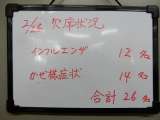 2/12 欠席状況
インフルエンザ 12名
かぜ様症状 14名
合計 26名